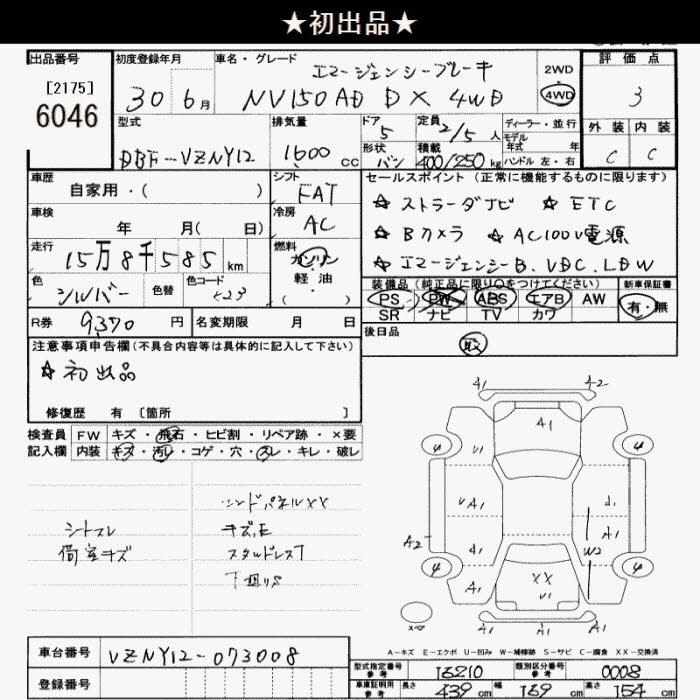 ★初出品★
出品番号
[2175]
6046
初度登録年月
30 6 月
車名・グレード
エマージェンシーブレーキ
NV150AD DX 4WD
2WD
4WD
評価点
3
外装 内装
C C
型式
DBF-VZNY12
排気量
1600 cc
ドア
5
形状
バン
定員
2/5 人
積載
400/250 kg
ディーラー・並行
モデル
年式 年
ハンドル 左・右
車歴
自家用・( )
シフト
FAT
車検
年 月( 日)
冷房
AC
走行
15万8千585 km
燃料
ガソリン
軽・油
( )
色
シルバー
色替
色コード
K23
R券
9370 円
名変期限 月 日
セールスポイント (正常に機能するものに限ります)
☆ストラーダナビ ☆ETC
☆Bカメラ ☆AC100V電源
☆エマージェンシーB.VDC.LDW
装備品 (純正品に限り○をつけてください)
新車保証書
PS PW ABS エアB AW
SR ナビ TV カワ
有・無
後日品
取
注意事項申告欄 (不具合内容等は具体的に記入して下さい)
☆初出品
修復歴 有 〔箇所 〕
検査員 FW キズ・飛石・ヒビ割・リペア跡・×要
記入欄 内装 キズ・汚れ・コゲ・穴・スレ・キレ・破レ
シートスレ
荷室キズ
エンドパネルXX
キズ.E
スタッドレス
下廻りS
A1 A2
A1
4 4
U1
UA1 A1
A2 A1
A1 W2
4 4
A1 XX A1
U1
スペア
A-キズ E-エクボ U-凹み W-補修跡 S-サビ C-腐食 XX-交換済
車台番号
VZNY12-073008
登録番号
型式指定番号
参考
16210
類別区分番号
参考
0008
車庫証明用
参考
長さ 439 cm 幅 169 cm 高さ 154 cm